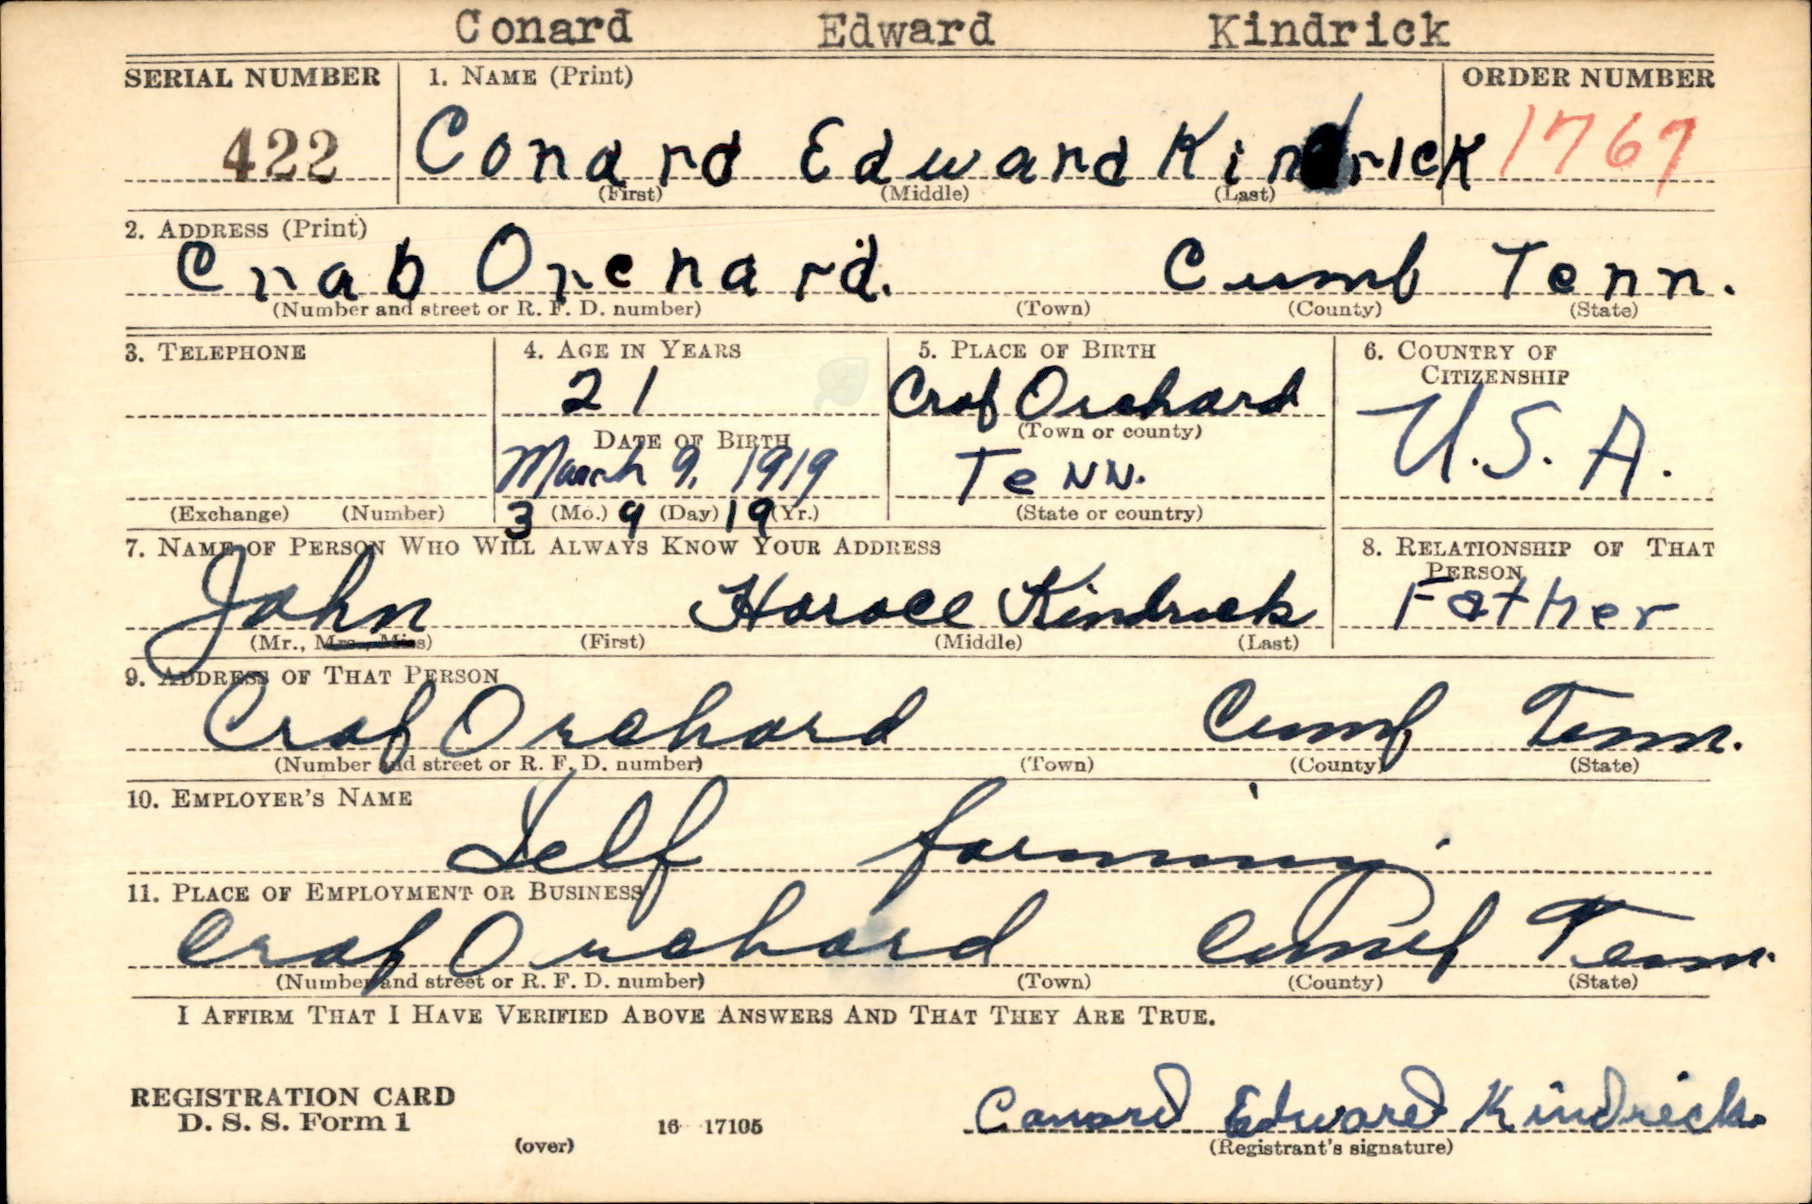 Conard Edward Kindrick
SERIAL NUMBER 1. NAME (Print) ORDER NUMBER
422 Conard Edward Kindrick 1767
(First) (Middle) (Last)
2. ADDRESS (Print)
Crab Orchard. Cumb Tenn.
(Number and street or R. F. D. number) (Town) (County) (State)
3. TELEPHONE 4. AGE IN YEARS 5. PLACE OF BIRTH 6. COUNTRY OF CITIZENSHIP
21 Crab Orchard U.S.A.
DATE OF BIRTH (Town or county)
March 9, 1919 Tenn.
(Exchange) (Number) 3 (Mo.) 9 (Day) 19 (Yr.) (State or country)
7. NAME OF PERSON WHO WILL ALWAYS KNOW YOUR ADDRESS 8. RELATIONSHIP OF THAT PERSON
John Horace Kindrick Father
(Mr., Mrs., Miss) (First) (Middle) (Last)
9. ADDRESS OF THAT PERSON
Crab Orchard Cumb Tenn.
(Number and street or R. F. D. number) (Town) (County) (State)
10. EMPLOYER'S NAME
Self farming
11. PLACE OF EMPLOYMENT OR BUSINESS
Crab Orchard Cumb Tenn.
(Number and street or R. F. D. number) (Town) (County) (State)
I AFFIRM THAT I HAVE VERIFIED ABOVE ANSWERS AND THAT THEY ARE TRUE.
REGISTRATION CARD
D. S. S. Form 1 16 17105 Conard Edward Kindrick
(over) (Registrant's signature)